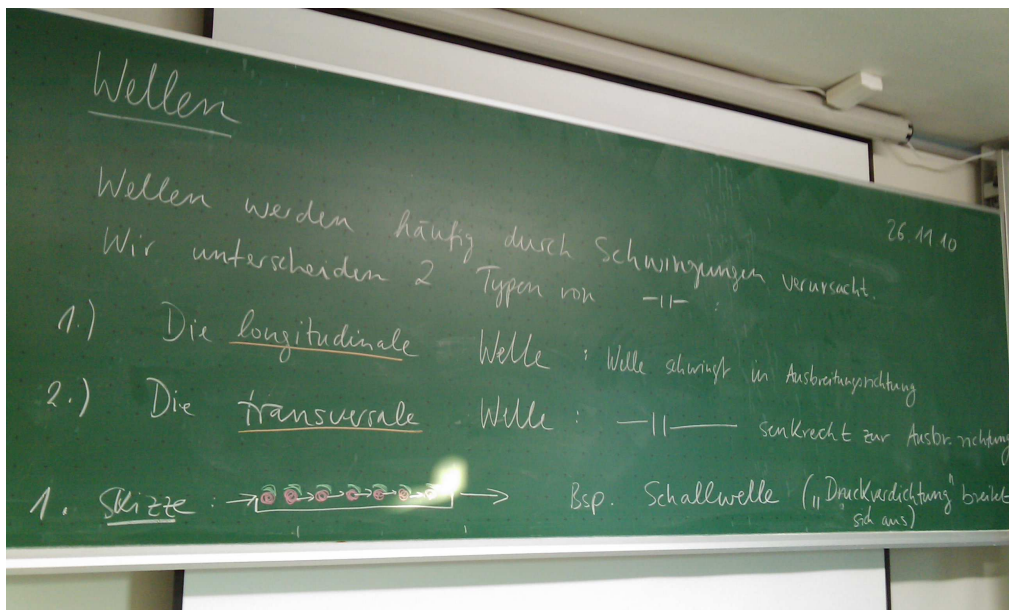 Wellen
26.11.10
Wellen werden häufig durch Schwingungen verursacht.
Wir unterscheiden 2 Typen von -||- :
1.) Die longitudinale Welle : Welle schwingt in Ausbreitungsrichtung
2.) Die transversale Welle : —||—— senkrecht zur Ausbr.richtung
1. Skizze : Bsp. Schallwelle („Druckverdichtung" breitet
sich aus)